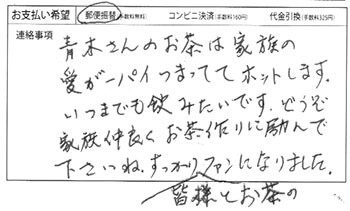 お支払い希望 郵便振替(手数料無料) コンビニ決済(手数料160円) 代金引換(手数料325円)
連絡事項
青木さんのお茶は家族の
愛が一パイつまっててホットします。
いつまでも飲みたいです。どうぞ
家族仲良くお茶作りに励んで
下さいね。すっかりファンになりました。
皆様とお茶の